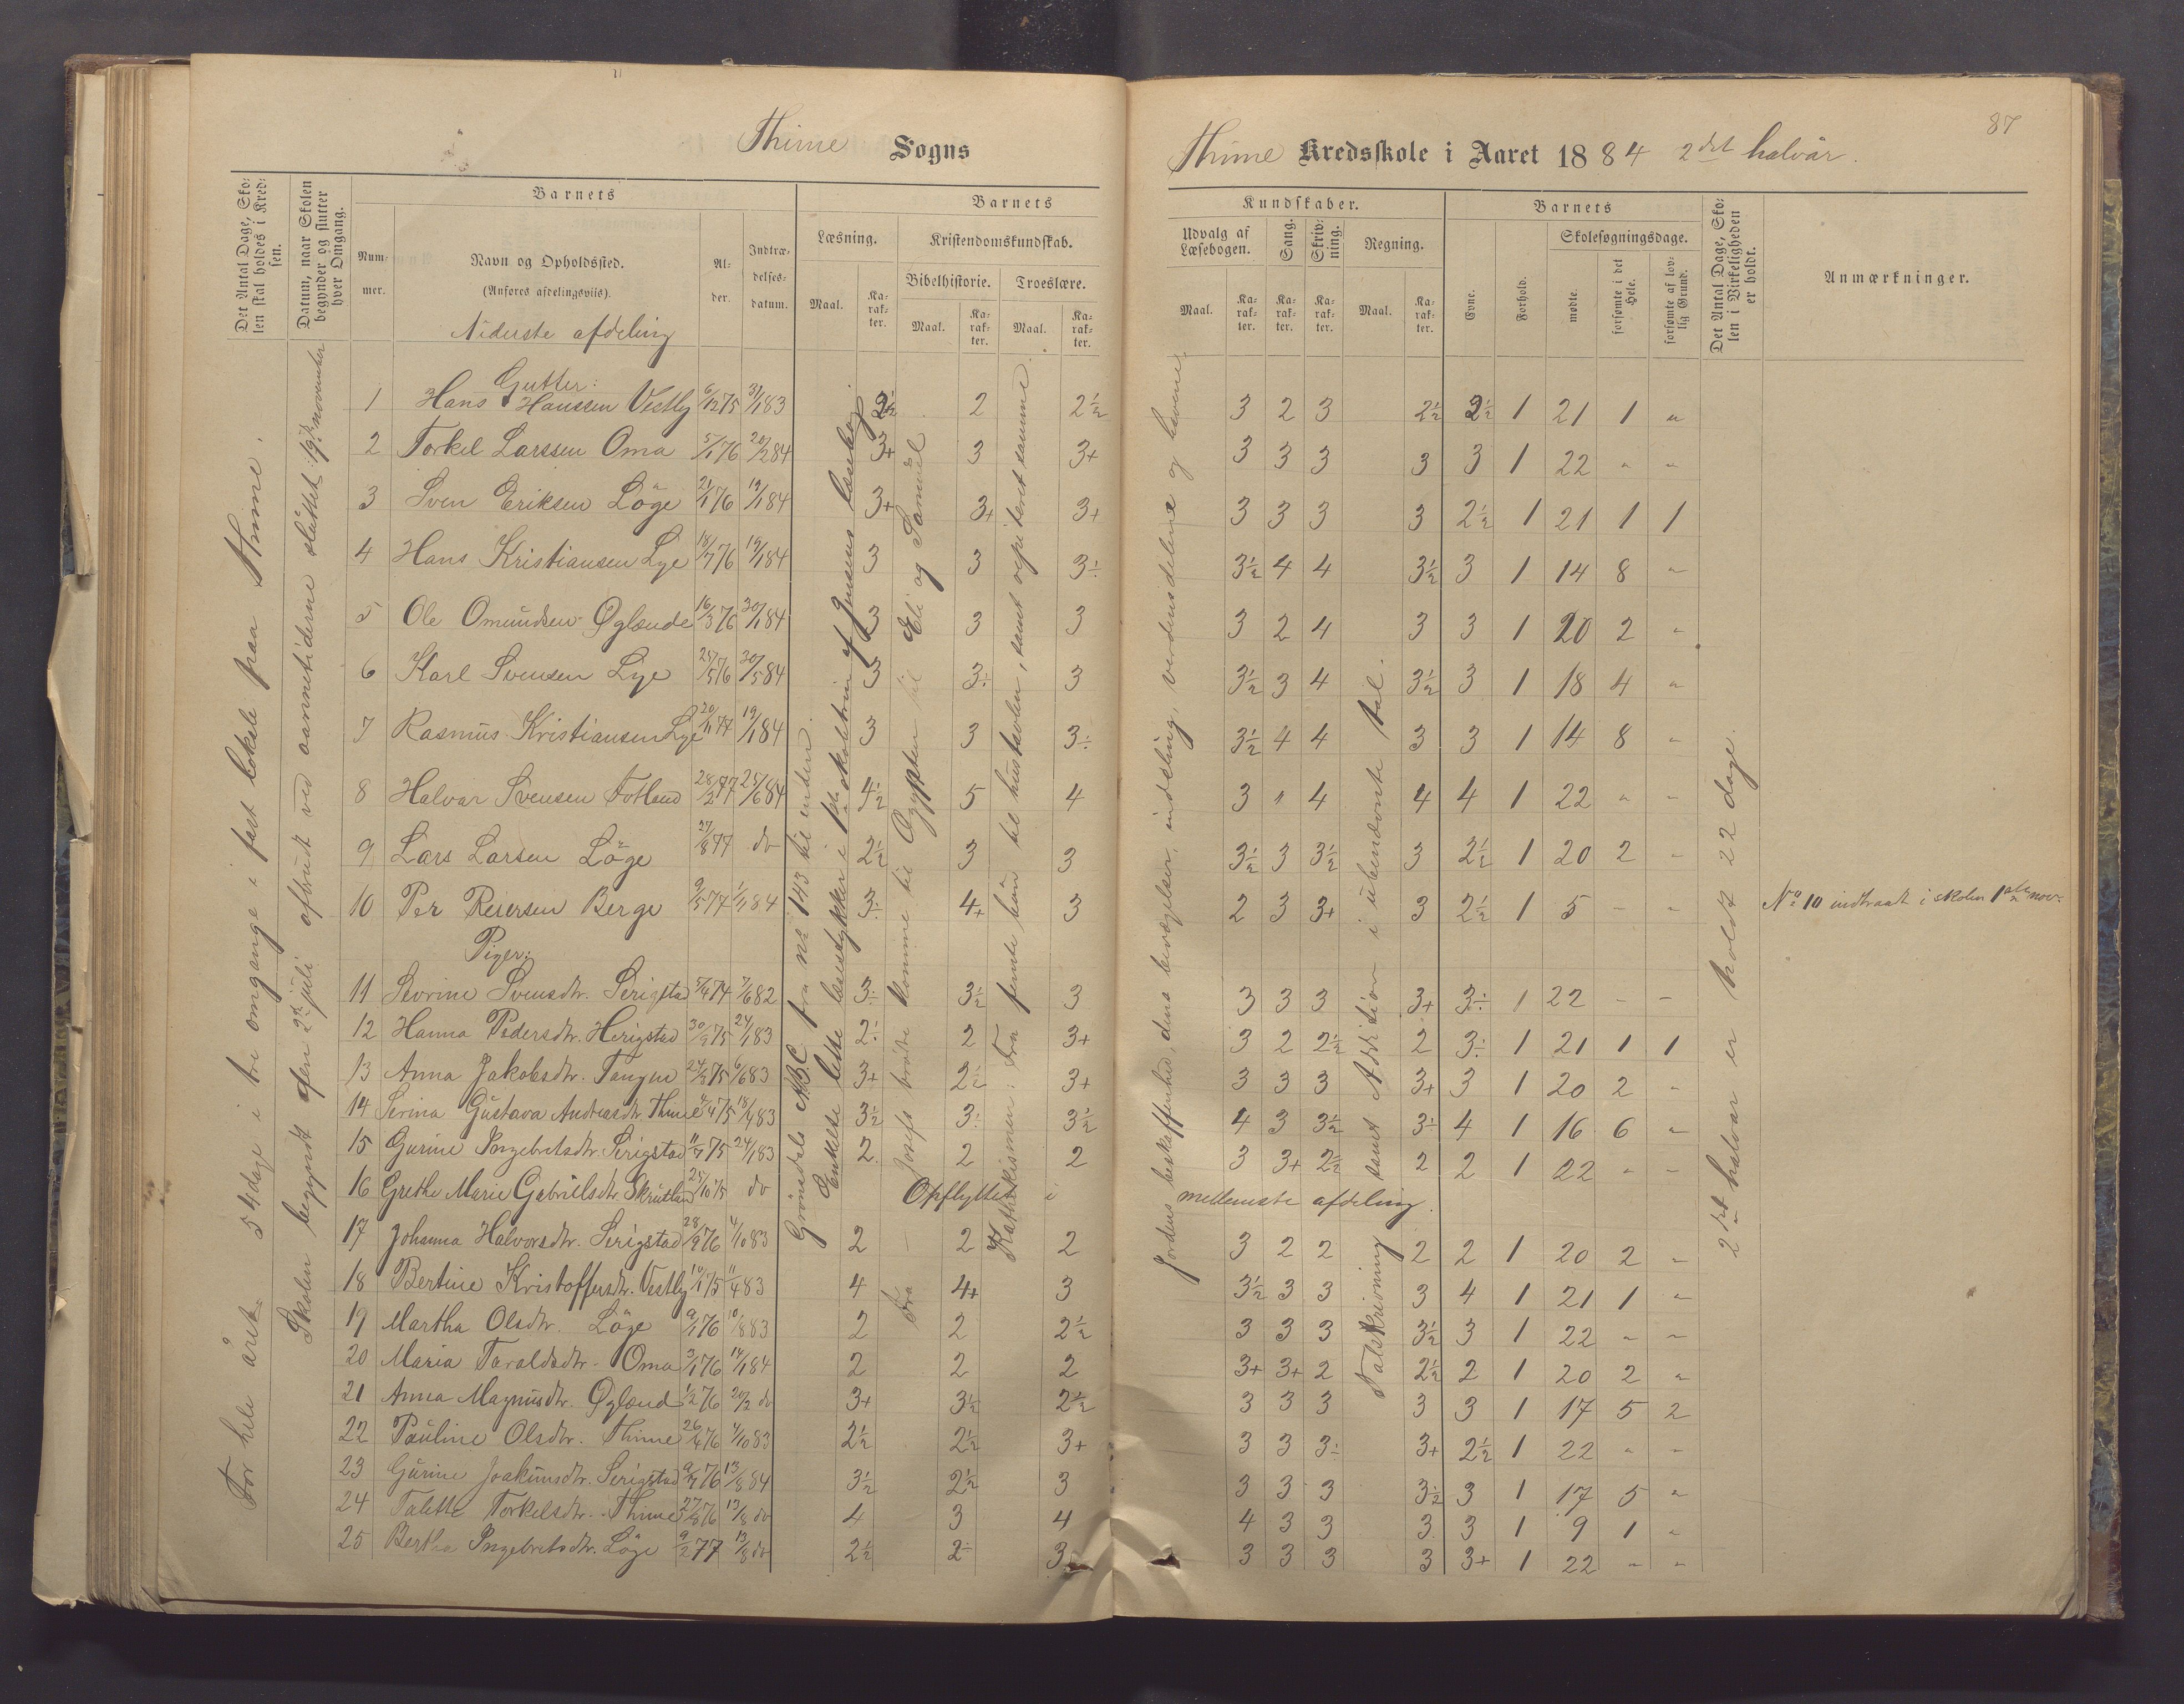 Thime Sogns
Thime Kredsskole i Aaret 1884 2det halvår.
87
Det Antal Dage, Skolen skal holdes i Kredsen.
Datum, naar Skolen begynder og slutter hver Omgang.
Barnets
Nummer.
Navn og Opholdssted.
(Anføres afdelingsviis).
Alder.
Indtrædelsesdatum.
Barnets
Læsning.
Kristendomskundskab.
Bibelhistorie. Troeslære.
Maal. Karakter. Maal. Karakter. Maal. Karakter.
Kundskaber.
Udvalg af Læsebogen.
Sang.
Skrivning.
Regning.
Maal. Karakter. Karakter. Karakter. Maal. Karakter.
Barnets
Evne.
Forhold.
Skolesøgningsdage.
mødte.
forsømte i det Hele.
forsømte af lovlig Grund.
Det Antal Dage, Skolen i Virkeligheden er holdt.
Anmærkninger.
Niderste afdeling
Gutter:
1 Hans Hanssen Vestly 6/12 75 31/1 83 2½ 2 2½ 3 2 3 2½ 2½ 1 21 1 "
2 Torkel Larssen Oma 5/1 76 20/2 84 3+ 3 3+ 3 3 3 3 3 1 22 " "
3 Sven Eriksen Löge 21/1 76 19/1 84 3+ 3+ 3+ 3 3 3 3 2½ 1 21 1 1
4 Hans Kristiansen Lye 18/7 76 19/1 84 3 3 3÷ 3½ 4 4 3½ 3 1 14 8 "
5 Ole Omundsen Øglænde 16/3 76 30/1 84 3 3 3 3 2 4 3 3 1 20 2 "
6 Karl Svensen Lye 25/5 76 30/5 84 3 3÷ 3 3½ 3 4 3½ 3 1 18 4 "
7 Rasmus Kristiansen Lye 20/11 77 19/1 84 3 3 3÷ 3½ 4 4 3 3 1 14 8 "
8 Halvar Svensen Fotland 28/2 77 25/6 84 4½ 5 4 3 " 4 4 4 1 22 " "
9 Lars Larsen Löge 27/8 77 do 2½ 3 3 3½ 3 3½ 3 2½ 1 20 2 "
10 Per Reiersen Berge 9/5 77 1/11 84 3÷ 4+ 3 2 3 3+ 3 2½ 1 5 - - No 10 indtraat i skolen 1ste nov.
Piger:
11 Sevrine Svensdtr. Serigstad 5/4 74 7/6 82 3÷ 3½ 3 3 3 3 3+ 3÷ 1 22 - -
12 Hanna Pedersdtr. Herigstad 30/9 75 24/1 83 2÷ 2 3+ 3 2 2½ 2 3÷ 1 21 1 1
13 Anna Jakobsdtr. Tangen 24/8 75 6/6 83 3+ 2½ 3+ 3 3 3 3+ 3 1 20 2 -
14 Serina Gustava Andreasdtr. Thime 4/4 75 18/4 83 3½ 3÷ 3½ 4 3 3½ 3÷ 4 1 16 6 "
15 Gurine Ingebretsdtr. Serigstad 11/7 75 24/1 83 2 2 2 3 3+ 2½ 2 2 1 22 " -
16 Grethe Marie Gabrielsdtr. Skrutland 25/10 75 do Opflyttet i mellemste afdeling.
17 Johanna Halvorsdtr. Serigstad 28/9 76 4/10 83 2 2 2 3 2 2 2 2 1 20 2 -
18 Bertine Kristoffersdtr. Vestly 14/1 75 11/4 83 4 4+ 3 3½ 3 3 3 4 1 21 1 "
19 Martha Olsdtr. Löge 9/1 76 10/8 83 2 2 2½ 3 3 3 3½ 3 1 22 - -
20 Maria Taraldsdtr. Oma 3/1 76 14/1 84 2 2 2 3+ 3+ 2 2½ 2 1 20 2 "
21 Anna Magnusdtr. Øglænd 1/2 76 20/2 do 3+ 3½ 2½ 3 3 3 3 3 1 17 5 2
22 Pauline Olsdtr. Thime 26/4 76 4/10 83 2½ 2½ 3+ 3 3 3÷ 3+ 2½ 1 22 " -
23 Gurine Joakimsdtr. Serigstad 9/7 76 13/8 84 3½ 2½ 3 3 3 3 3½ 3 1 17 5 "
24 Talette Torkelsdtr. Thime 27/8 76 13/8 do 4 3 4 4 3 3 3 3 1 9 1 "
25 Bertha Ingebretsdtr. Löge 9/2 77 13/8 do 2½ 2÷ 3 3 3 3 3 3+ 1 22 - "
For hele året. 54 dage i tre omgange i fast lokale paa Thime.
Skolen begyndt den 2den juli afbrudt ved aannetiderne sluttet 19de november
Grøndals A.B.C. fra no 143 til enden.
Enkelte lette læsestykker i 1ste skoletrin af Jensens læsebog
Fra Josefs brødre komme til Ægypten til Eli og Samuel
Kathekismen: Fra femte bøn til hustavlen, samt repeteret samme.
Jordens beskaffenhed, dens bevægelser, inddeling, verdensdelene og havene,
Talskrivning samt Addition i ubenævnte tal.
2det halvår er holdt 22 dage.